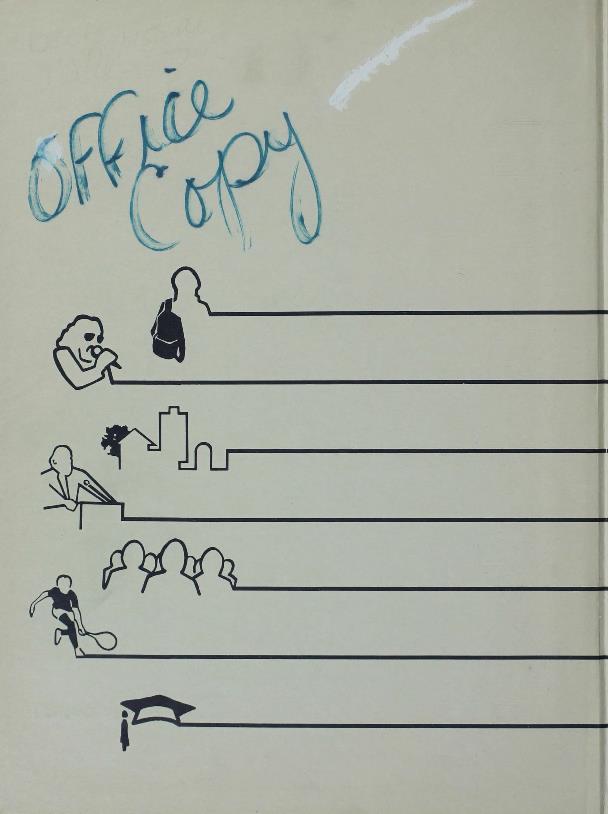 Office
Copy